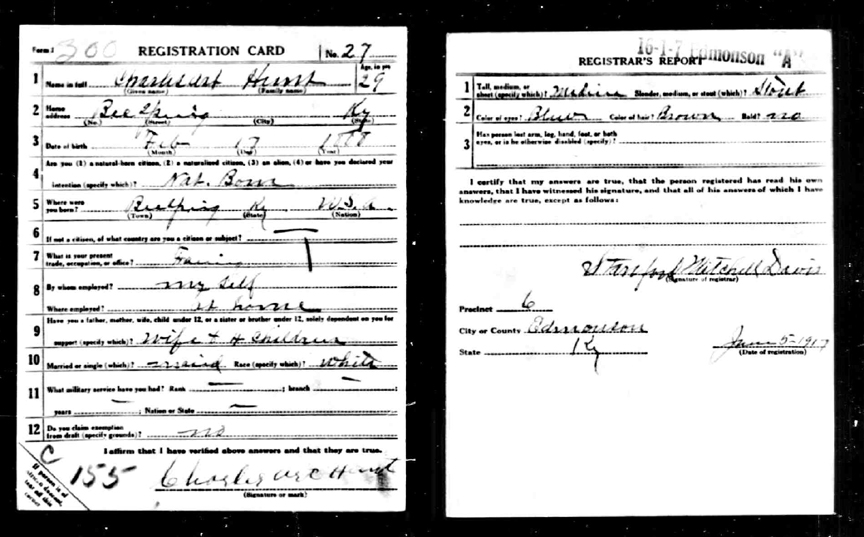 Form 1 300 REGISTRATION CARD No. 27
1 Name in full Hurst Age, in yrs 29
(Given name) (Family name)
2 Home address Bee Spring Ky
(No.) (Street) (City) (State)
3 Date of birth Feb
(Month) (Day) (Year)
Are you (1) a natural-born citizen, (2) a naturalized citizen, (3) an alien, (4) or have you declared your
4 intention (specify which)? Nat. Born
5 Where were you born? Ky U.S.A.
(Town) (State) (Nation)
6 If not a citizen, of what country are you a citizen or subject?
7 What is your present trade, occupation, or office?
8 By whom employed? my self
Where employed? at home
9 Have you a father, mother, wife, child under 12, or a sister or brother under 12, solely dependent on you for
support (specify which)? Wife & 4 Children
10 Married or single (which)? Race (specify which)? White
11 What military service have you had? Rank — ; branch — ;
years — ; Nation or State —
12 Do you claim exemption from draft (specify grounds)? no
I affirm that I have verified above answers and that they are true.
C
155
Charles Hurst
(Signature or mark)
If person is of African descent, tear off this corner
16-1-7 Edmonson "A"
REGISTRAR'S REPORT
1 Tall, medium, or short (specify which)? Medium Slender, medium, or stout (which)? Stout
2 Color of eyes? Blue Color of hair? Brown Bald? no
3 Has person lost arm, leg, hand, foot, or both eyes, or is he otherwise disabled (specify)?
I certify that my answers are true, that the person registered has read his own
answers, that I have witnessed his signature, and that all of his answers of which I have
knowledge are true, except as follows:
Mitchell Davis
(Signature of registrar)
Precinct 6
City or County Edmonson
State Ky June 5-1917
(Date of registration)